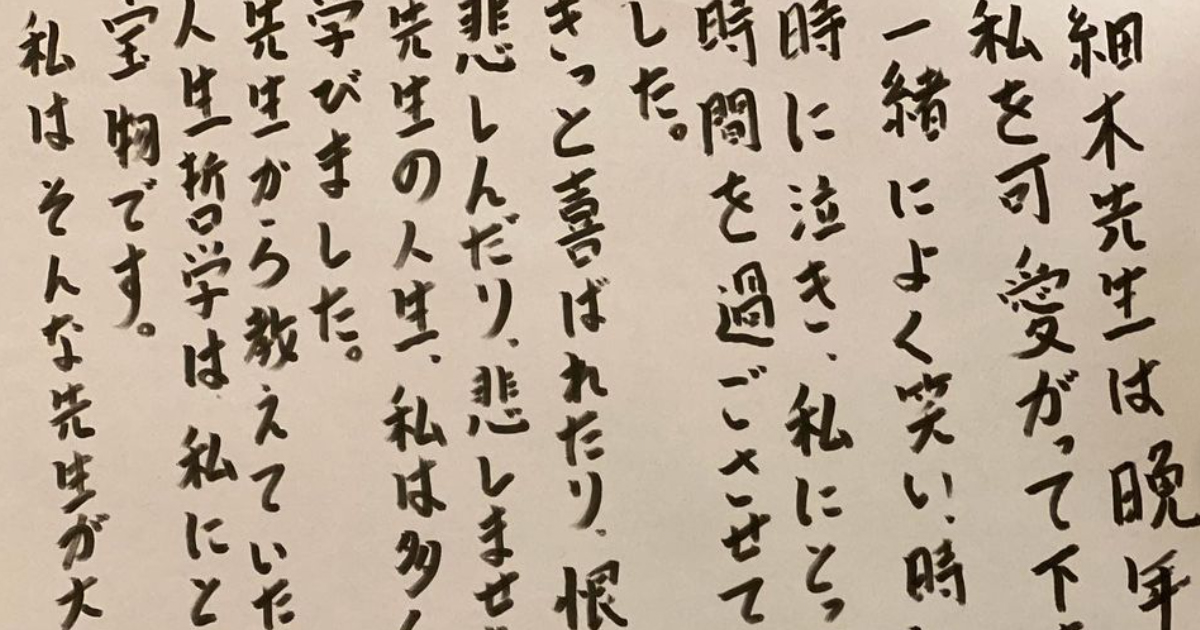 細木先生は晩年
私を可愛がって下
一緒によく笑い、時
時に泣き、私にとっ
時間を過ごさせて
した。
きっと喜ばれたり、恨
悲しんだり、悲しませ
先生の人生、私は多く
学びました。
先生から教えていた
人生哲学は、私にと
宝物です。
私はそんな先生が大